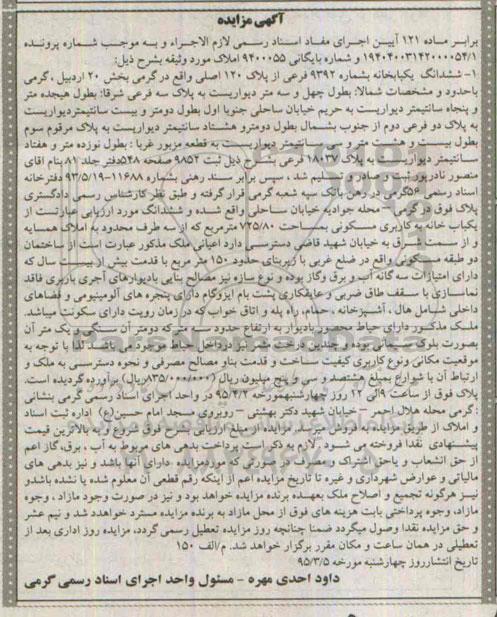 آگهی مزایده
برابر ماده ۱۲۱ آیین اجرای مفاد اسناد رسمی لازم الاجراء و به موجب شماره پرونده
۱۹۴۰۴۰۰۳۱۴۲۰۰۰۰۵۴/۱ و شماره بایگانی ۹۴۰۰۰۵۵ املاک مورد وثیقه بشرح ذیل:
۱- ششدانگ یکبابخانه بشماره ۹۳۹۲ فرعی از پلاک ۱۲۰ اصلی واقع در گرمی بخش ۲۰ اردبیل، گرمی
باحدود و مشخصات شمالا: بطول چهل و سه متر دیواریست به پلاک سه فرعی شرقا: بطول هیجده متر
و پنجاه سانتیمتر دیواریست به حریم خیابان ساحلی جنوبا اول بطول دومتر و بیست سانتیمتر دیواریست
به پلاک دو فرعی دوم از جنوب بشمال بطول دومتر و هشتاد سانتیمتر دیواریست به پلاک مرقوم سوم
بطول بیست و هشت متر و سی سانتیمتر دیواریست به قطعه مزبور غربا: بطول نوزده متر و هفتاد
سانتیمتر دیواریست به پلاک ۱۸۰۳۷ فرعی بشرح ذیل ثبت ۹۸۵۲ صفحه ۵۴۸ دفتر جلد ۸۱ بنام آقای
منصور نادرپور ثبت و صادر و تسلیم شد، سپس برابر سند رهنی بشماره ۱۱۶۸۸-۹۳/۵/۱۹ دفترخانه
اسناد رسمی ۵۶ گرمی در رهن بانک سپه شعبه گرمی قرار گرفته و طبق نظر کارشناس رسمی دادگستری
پلاک فوق در گرمی - محله جوادیه خیابان ساحلی واقع شده و ششدانگ مورد ارزیابی عبارتست از
یکباب خانه به کاربری مسکونی بمساحت ۷۲۵/۸۰ مترمربع که از سه طرف محدود به املاک همسایه
و از سمت شرق به خیابان شهید قاضی دسترسی دارد اعیانی ملک مذکور عبارت است از ساختمان
دو طبقه مسکونی واقع در ضلع غربی با زیربنای حدود ۱۵۰ متر مربع با قدمت بیش از بیست سال که
دارای امتیازات سه گانه آب و برق وگاز بوده و نوع سازه نیز مصالح بنایی بادیوارهای آجری باربری فاقد
نماسازی با سقف طاق ضربی و عایقکاری پشت بام ایزوگام دارای پنجره های آلومینیومی و فضاهای
داخلی شامل هال، آشپزخانه، حمام، راه پله و اتاق خواب که در زمان رویت دارای سکونت میباشد.
ملک مذکور دارای حیاط محصور بادیوار به ارتفاع حدود سه متر که دومتر آن سنگی و یک متر آن
بصورت بلوک سیمانی بوده و چندین درخت مثمر در داخل حیاط موجود می باشد. لذا با توجه به
موقعیت مکانی ونوع کاربری کیفیت ساخت و قدمت بناو مصالح مصرفی و نحوه دسترسی به ملک و
ارتباط آن با شوارع بمبلغ هشتصد و سی و پنج میلیون ریال (۸۳۵/۰۰۰/۰۰۰ریال) برآورده گردیده است.
پلاک فوق از ساعت ۹ الی ۱۲ روز چهارشنبه مورخه ۹۵/۴/۲ در واحد اجرای اسناد رسمی گرمی بنشانی
: گرمی محله هلال احمر - خیابان شهید دکتر بهشتی - روبروی مسجد امام حسین(ع) اداره ثبت اسناد
و املاک از طریق مزایده بفروش میرسد مزایده از مبلغ ارزیابی بشرح فوق شروع و به بالاترین قیمت
پیشنهادی نقدا فروخته می شود. لازم به ذکر است پرداخت بدهی های مربوط به آب، برق، گاز اعم
از حق انشعاب و یاحق اشتراک و مصرف در صورتی که موردمزایده دارای آنها باشد و نیز بدهی های
مالیاتی و عوارض شهرداری و غیره تا تاریخ مزایده اعم از اینکه رقم قطعی آن معلوم شده یا نشده باشدو
نیز هرگونه تجمیع و اصلاح ملک بعهده برنده مزایده خواهد بود و نیز در صورت وجود مازاد، وجوه
مازاد، وجوه پرداختی بابت هزینه های فوق از محل مازاد به برنده مزایده مسترد خواهد شد و نیم عشر
و حق مزایده نقدا وصول میگردد ضمنا چنانچه روز مزایده تعطیل رسمی گردد، مزایده روز اداری بعد از
تعطیلی در همان ساعت و مکان مقرر برگزار خواهد شد. م/الف ۱۵۰
تاریخ انتشارروز چهارشنبه مورخه ۹۵/۳/۵
داود احدی مهره - مسئول واحد اجرای اسناد رسمی گرمی